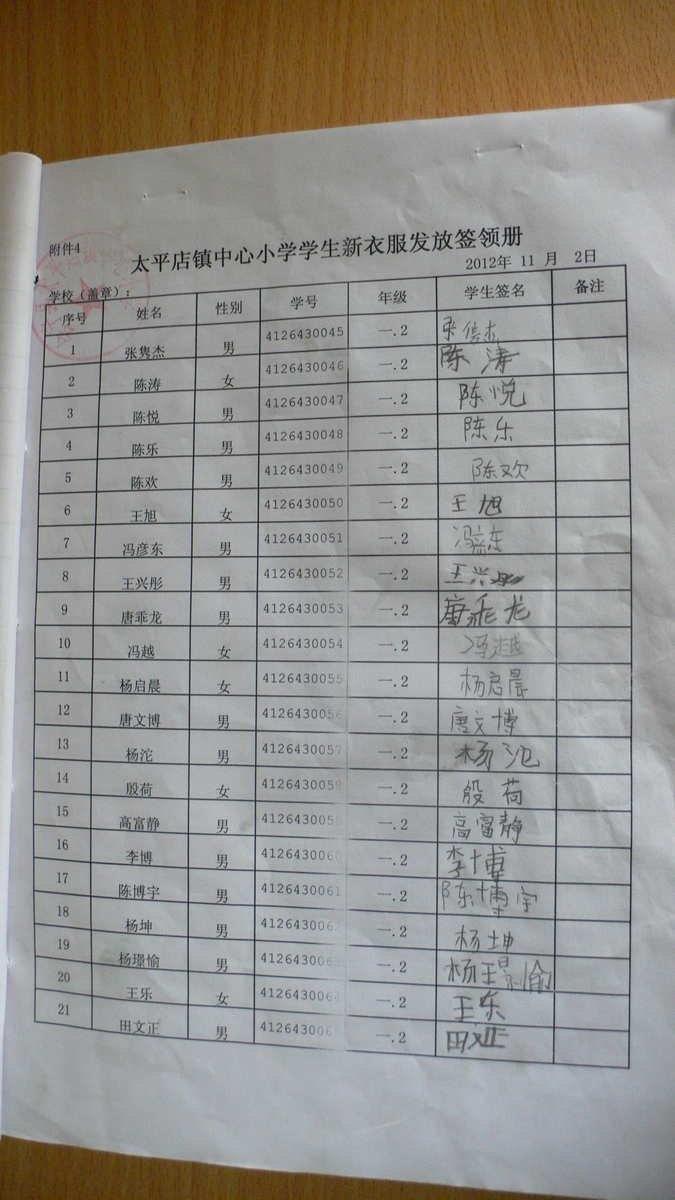 附件4
太平店镇中心小学学生新衣服发放签领册
学校（盖章）： 2012年 11 月 2日
序号 姓名 性别 学号 年级 学生签名 备注
1 张隽杰 男 4126430045 一.2
2 陈涛 女 4126430046 一.2 陈涛
3 陈悦 男 4126430047 一.2 陈悦
4 陈乐 男 4126430048 一.2 陈乐
5 陈欢 男 4126430049 一.2 陈欢
6 王旭 女 4126430050 一.2 王旭
7 冯彦东 男 4126430051 一.2 冯彦东
8 王兴彤 男 4126430052 一.2 王兴彤
9 唐乖龙 男 4126430053 一.2 唐乖龙
10 冯越 女 4126430054 一.2 冯越
11 杨启晨 女 4126430055 一.2 杨启晨
12 唐文博 男 4126430056 一.2 唐文博
13 杨沱 男 4126430057 一.2 杨沱
14 殷荷 女 4126430058 一.2 殷荷
15 高富静 男 412643005 一.2 高富静
16 李博 男 4126430060 一.2 李博
17 陈博宇 男 4126430061 一.2 陈博宇
18 杨坤 男 4126430062 一.2 杨坤
19 杨璟愉 男 4126430063 一.2 杨璟愉
20 王乐 女 4126430064 一.2 王乐
21 田文正 男 412643006 一.2 田文正